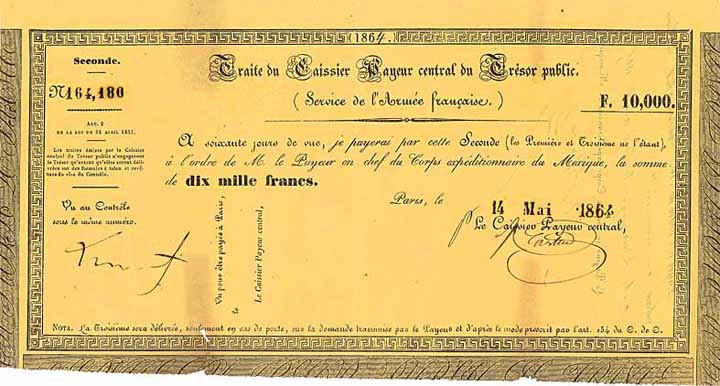 (1864.)
Seconde.
N° 164,180
Art. 2
DE LA LOI DU 24 avril 1833.
Les traites émises par le Caissier
central du Trésor public n'engageront
le Trésor qu'autant qu'elles seront déli-
vrées sur des formules à talon et revê-
tues du visa du Contrôle.
Vu au Contrôle
sous le même numéro.
Traite du Caissier Payeur central du Trésor public.
(Service de l'Armée française.)
F. 10,000.
A soixante jours de vue, je payerai par cette Seconde (les Première et Troisième ne l'étant)
à l'ordre de M. le Payeur en chef du Corps expéditionnaire du Mexique, la somme
de dix mille francs.
Paris, le 14 Mai 1864
Le Caissier Payeur central,
Vu pour être payée à Paris,
le
Le Caissier Payeur central,
NOTA. La Troisième sera délivrée, seulement en cas de perte, sur la demande transmise par le Payeur et d'après le mode prescrit par l'art. 134 du C. de C.